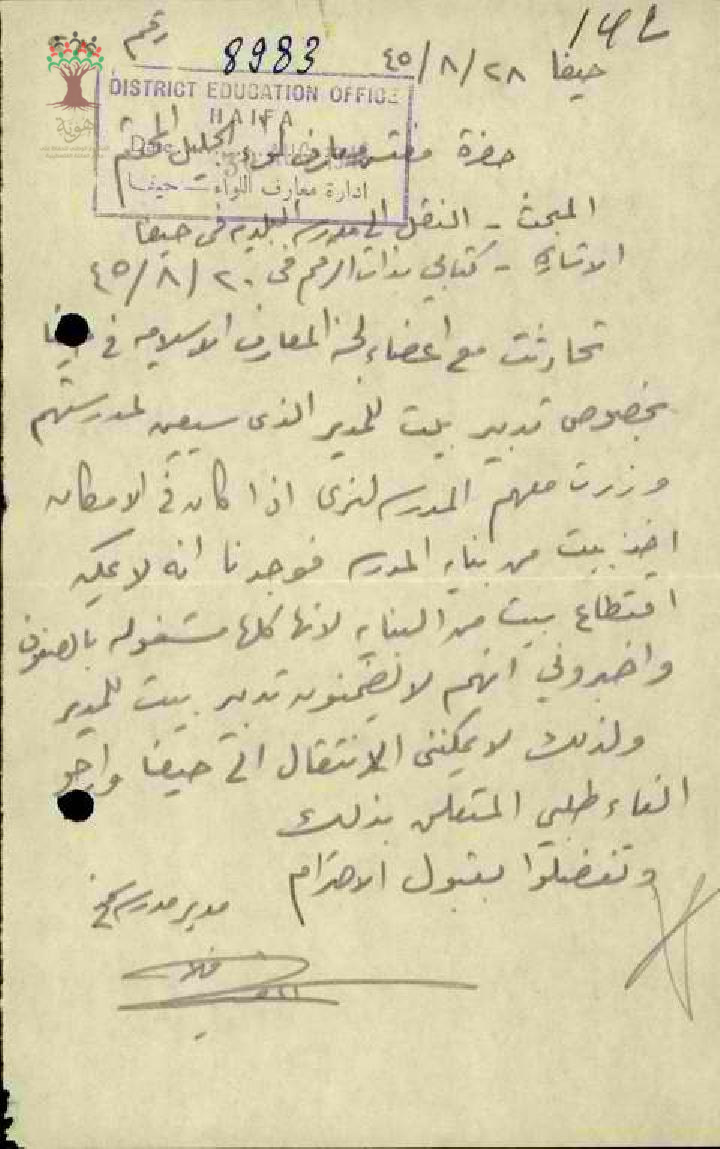 142
8983
حيفا ٤٥/٨/٢٨
DISTRICT EDUCATION OFFICE
HAIFA
Date
حضرة مفتش معارف لواء الجليل المحترم
ادارة معارف اللواء - حيفا
المبحث - النقل الى مدرسه البلديه في حيفا
الاشاره - كتابي بذات الرقم في ٤٥/٨/٢٠
تحادثت مع اعضاء لجنة المعارف الاسلاميه في حيفا
بخصوص تدبير بيت للمدير الذي سيعين لمدرستهم
وزرت معهم المدرسه لنرى اذا كان في الامكان
اخذ بيت من بناية المدرسه فوجدنا انه لا يمكن
اقتطاع بيت من البنايه لانها كلها مشغوله بالصفوف
واخبروني انهم لا يضمنون تدبير بيت للمدير
ولذلك لا يمكنني الانتقال الى حيفا وارجو
الغاء طلبي المتعلق بذلك
وتفضلوا بقبول الاحترام
مدير مدرسة